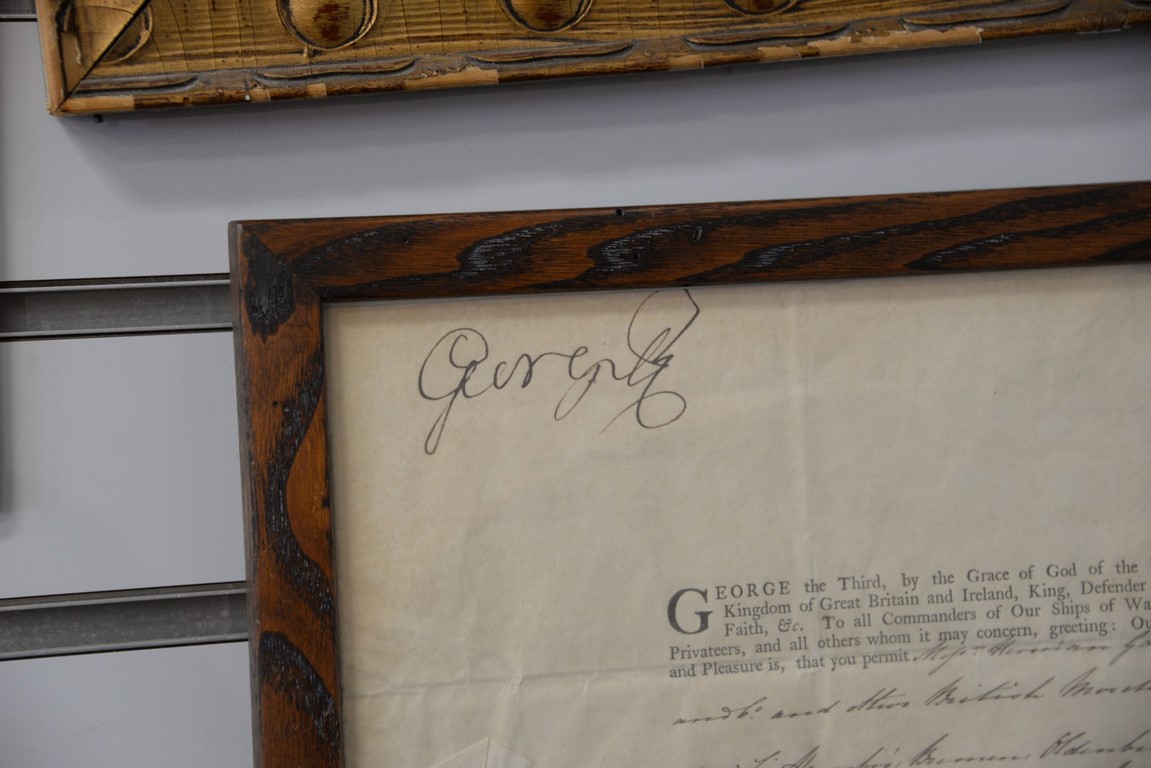 George R
GEORGE the Third, by the Grace of God of the
Kingdom of Great Britain and Ireland, King, Defender
Faith, &c. To all Commanders of Our Ships of Wa
Privateers, and all others whom it may concern, greeting: Ou
and Pleasure is, that you permit Messrs. Herman
and Co. and other British Merch
Bremen, Oldenbu